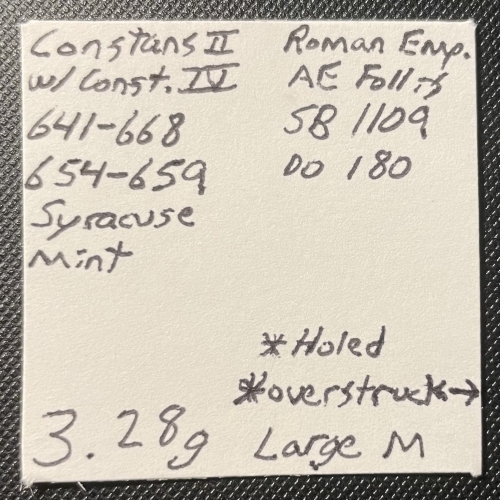 Constans II
w/ Const. IV
641-668
654-659
Syracuse
Mint
Roman Emp.
AE Follis
SB 1109
DO 180
*Holed
*overstruck→
Large M
3.28g